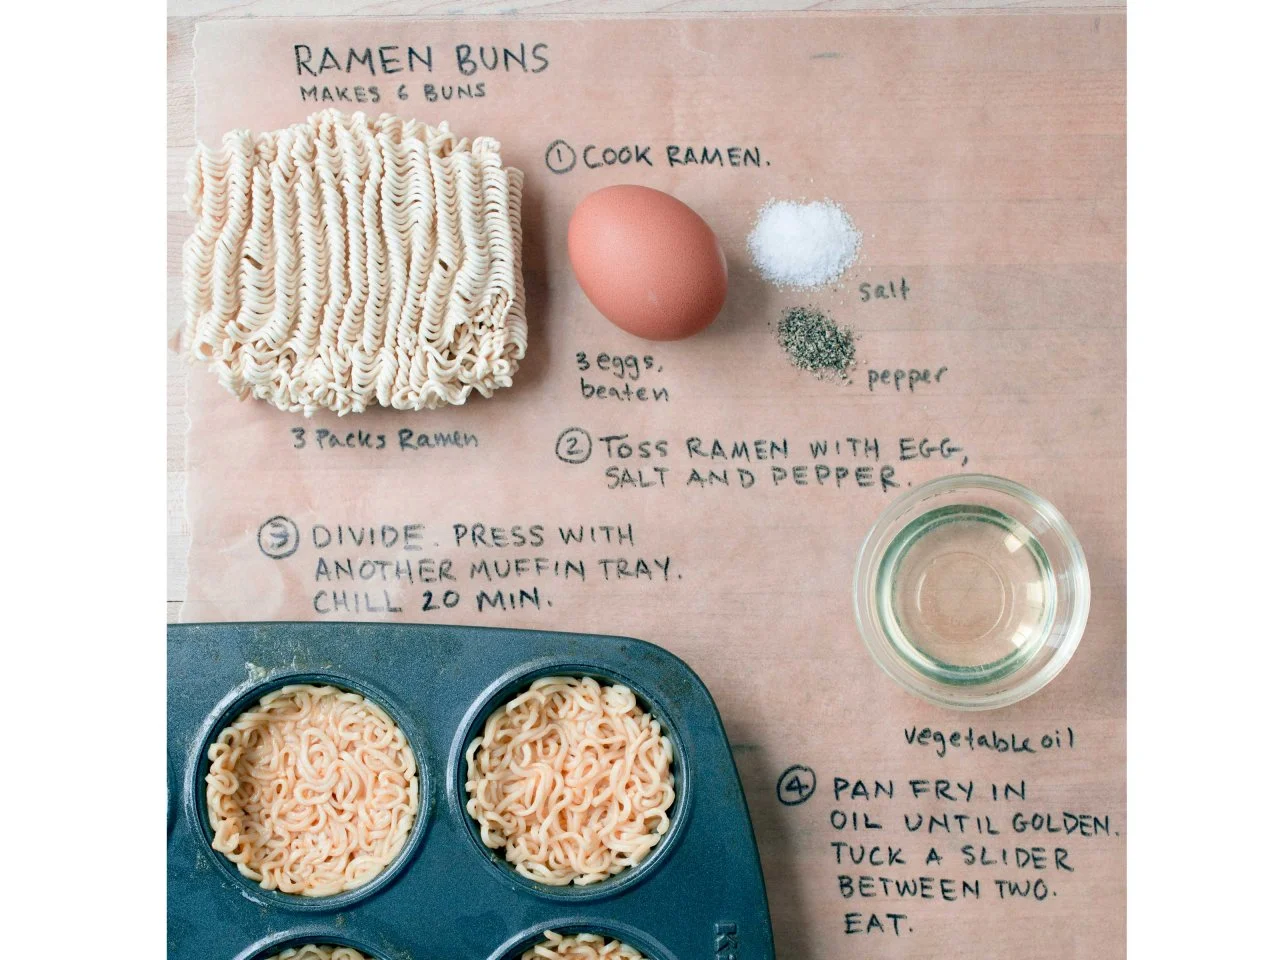 RAMEN BUNS
MAKES 6 BUNS
① COOK RAMEN.
salt
3 eggs,
beaten
pepper
3 Packs Ramen
② TOSS RAMEN WITH EGG,
SALT AND PEPPER.
③ DIVIDE. PRESS WITH
ANOTHER MUFFIN TRAY.
CHILL 20 MIN.
vegetable oil
④ PAN FRY IN
OIL UNTIL GOLDEN.
TUCK A SLIDER
BETWEEN TWO.
EAT.